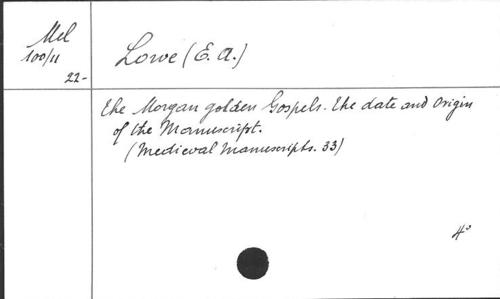 Mel
100/11
22-
Lowe (E. A.)
The Morgan golden Gospels. The date and Origin
of the Manuscript.
(Medieval Manuscripts. 33)
4°